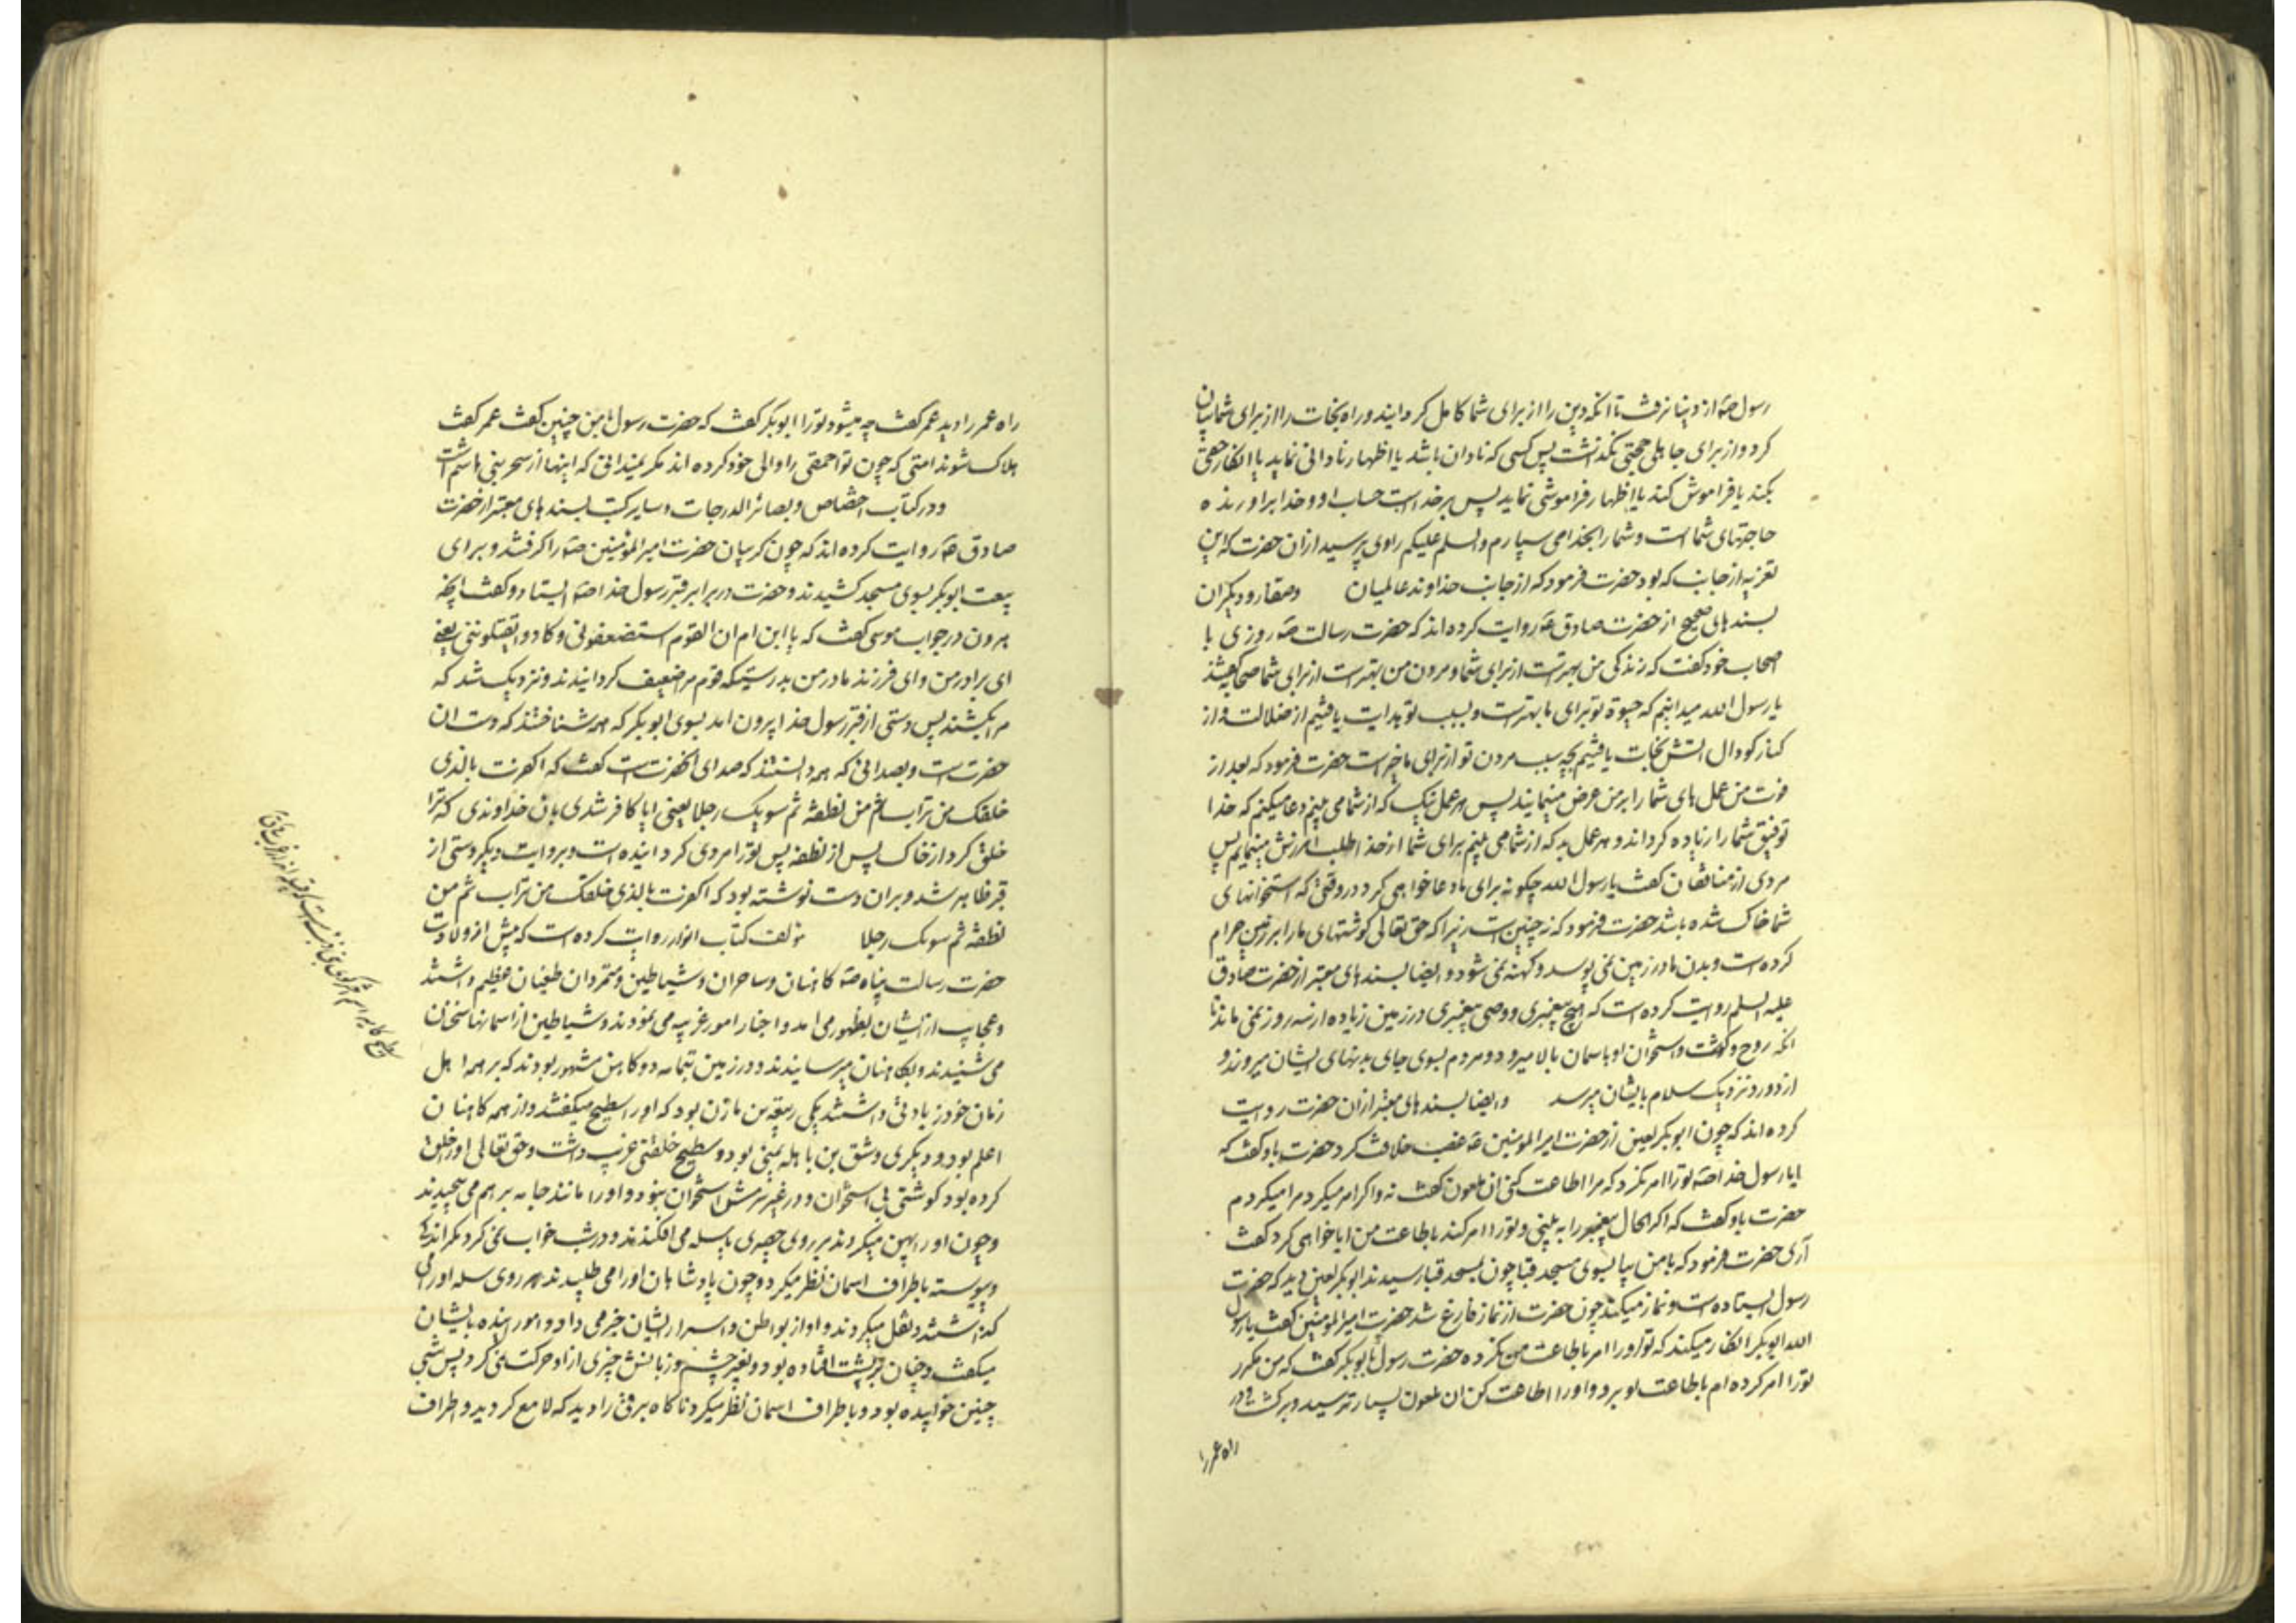 رسول صه از دنیا نرفت تا انکه دین را از برای شما کامل کردانید و راه نجات را از برای شما بیان
کرد و از برای جاهلی حجتی نکذاشت پس کسی که نادان باشد یا اظهار نادانی نماید یا انکار حقی
بکند یا فراموش کند یا اظهار فراموشی نماید پس بر خداست حساب او و خدا براورنده
حاجتهای شماست و شما را بخدا می سپارم و السلم علیکم راوی پرسید از ان حضرت که این
تعزیه از جانب که بود حضرت فرمود که از جانب خداوند عالمیان وصفار و دیکران
بسندهای صحیح از حضرت صادق عه روایت کرده اند که حضرت رسالت صه روزی با
اصحاب خود کفت که زندکی من بهترست از برای شما و مردن من بهترست از برای شما صحابه کفتند
یا رسول الله میدانیم که حیوة تو برای ما بهترست و بسبب تو هدایت یافتیم از ضلالت و از
کنار کودال اتش نجات یافتیم بچه سبب مردن تو از برای ما خیرست حضرت فرمود که بعد از
فوت من عمل های شما را بر من عرض مینمایند پس هر عمل نیک که از شما می بینم دعا میکنم که خدا
توفیق شما را زیاده کرداند و هر عمل بد که از شما می بینم برای شما از خدا طلب امرزش مینمایم پس
مردی از منافقان کفت یا رسول الله چکونه برای ما دعا خواهی کرد در وقتی که استخوانهای
شما خاک شده باشد حضرت فرمود که نه چنین است زیرا که حق تعالی کوشتهای ما را بر زمین حرام
کرده است و بدن ما در زمین نمی پوسد و کهنه نمی شود و ایضا بسندهای معتبر از حضرت صادق
علیه السلم روایت کرده است که هیچ پیغمبری و وصی پیغمبری در زمین زیاده از سه روز نمی ماند تا
انکه روح و کوشت و استخوان او باسمان بالا میرود و مردم بسوی جای بدنهای ایشان میروند و
از دور و نزدیک سلام بایشان میرسد و ایضا بسندهای معتبر از ان حضرت روایت
کرده اند که چون ابوبکر لعین از حضرت امیر المومنین عه غصب خلافت کرد حضرت باو کفت که
ایا رسول خدا صه تو را امر نکرد که مرا اطاعت کنی ان ملعون کفت نه و اکر امر میکرد مرا میکردم
حضرت باو کفت که اکر الحال پیغمبر را به بینی و تو را امر کند باطاعت من ایا خواهی کرد کفت
آری حضرت فرمود که با من بیا بسوی مسجد قبا چون بمسجد قبا رسیدند ابوبکر لعین دید که حضرت
رسول ایستاده است و نماز میکند چون حضرت از نماز فارغ شد حضرت امیر المومنین کفت یا رسول
الله ابوبکر انکار میکند که تو او را امر باطاعت من نکرده حضرت رسول بابوبکر کفت که من مکرر
تو را امر کرده ام باطاعت او برو و او را اطاعت کن ان ملعون بسیار ترسید و برکشت و در
راه عمر را
راه عمر را دید عمر کفت چه میشود تو را ابوبکر کفت که حضرت رسول با من چنین کفت عمر کفت
هلاک شوند امتی که چون تو احمقی را والی خود کرده اند مکر نمیدانی که اینها از سحر بنی هاشم است
و در کتاب اختصاص و بصائر الدرجات و سایر کتب بسندهای معتبر از حضرت
صادق عه روایت کرده اند که چون کریبان حضرت امیر المؤمنین صه را کرفتند و برای
بیعت ابوبکر بسوی مسجد کشیدند و حضرت در برابر قبر رسول خدا صه ایستاد و کفت انچه
هرون در جواب موسی کفت که یا ابن ام ان القوم استضعفونی و کادوا یقتلوننی یعنی
ای برادر من و ای فرزند مادر من بدرستیکه قوم مرا ضعیف کردانیدند و نزدیک شد که
مرا بکشند پس دستی از قبر رسول خدا بیرون امد بسوی ابوبکر که همه شناختند که دست ان
حضرتست و بصدائی که همه دانستند که صدای انحضرتست کفت که اکفرت بالذی
خلقک من تراب ثم من نطفة ثم سویک رجلا یعنی ایا کافر شدی بان خداوندی که ترا
خلق کرد از خاک پس از نطفه پس تو را مردی کردانیده است و بروایت دیکر دستی از
قبر ظاهر شد و بران دست نوشته بود که اکفرت بالذی خلقک من تراب ثم من
نطفة ثم سویک رجلا مؤلف کتاب انوار روایت کرده است که پیش از ولادت
حضرت رسالت پناه صه کاهنان و ساحران و شیاطین و متمردان طغیان عظیم داشتند
و عجایب از ایشان بظهور می امد و اخبار امور غریبه می نمودند و شیاطین از اسمانها سخنان
می شنیدند و بکاهنان میرسانیدند و در زمین تهامه دو کاهن مشهور بودند که بر همه اهل
زمان خود زیادتی داشتند یکی ربیعه بن مازن بود که او را سطیح میکفتند و از همه کاهنان
اعلم بود و دیکری وشق بن باهله یمنی بود و سطیح خلقتی غریب داشت و حق تعالی او را خلق
کرده بود کوشتی بی استخوان و در غیر سرش استخوان نبود و او را مانند جامه بر هم می پیچیدند
و چون او را پهن میکردند بر روی حصیری یا سله می افکندند و در شب خواب نمی کرد مکر اندکی
و پیوسته باطراف اسمان نظر میکرد و چون پادشاهان او را می طلبیدند بر روی سله او را می
کذاشتند و نقل میکردند و او از بواطن و اسرار ایشان خبر می داد و امور اینده بایشان
میکفت و چنان بر پشت افتاده بود و بغیر چشم و زبانش چیزی از او حرکت نمی کرد پس شبی
چنین خوابیده بود و باطراف اسمان نظر میکرد ناکاه برقی را دید که لامع کردید و اطراف